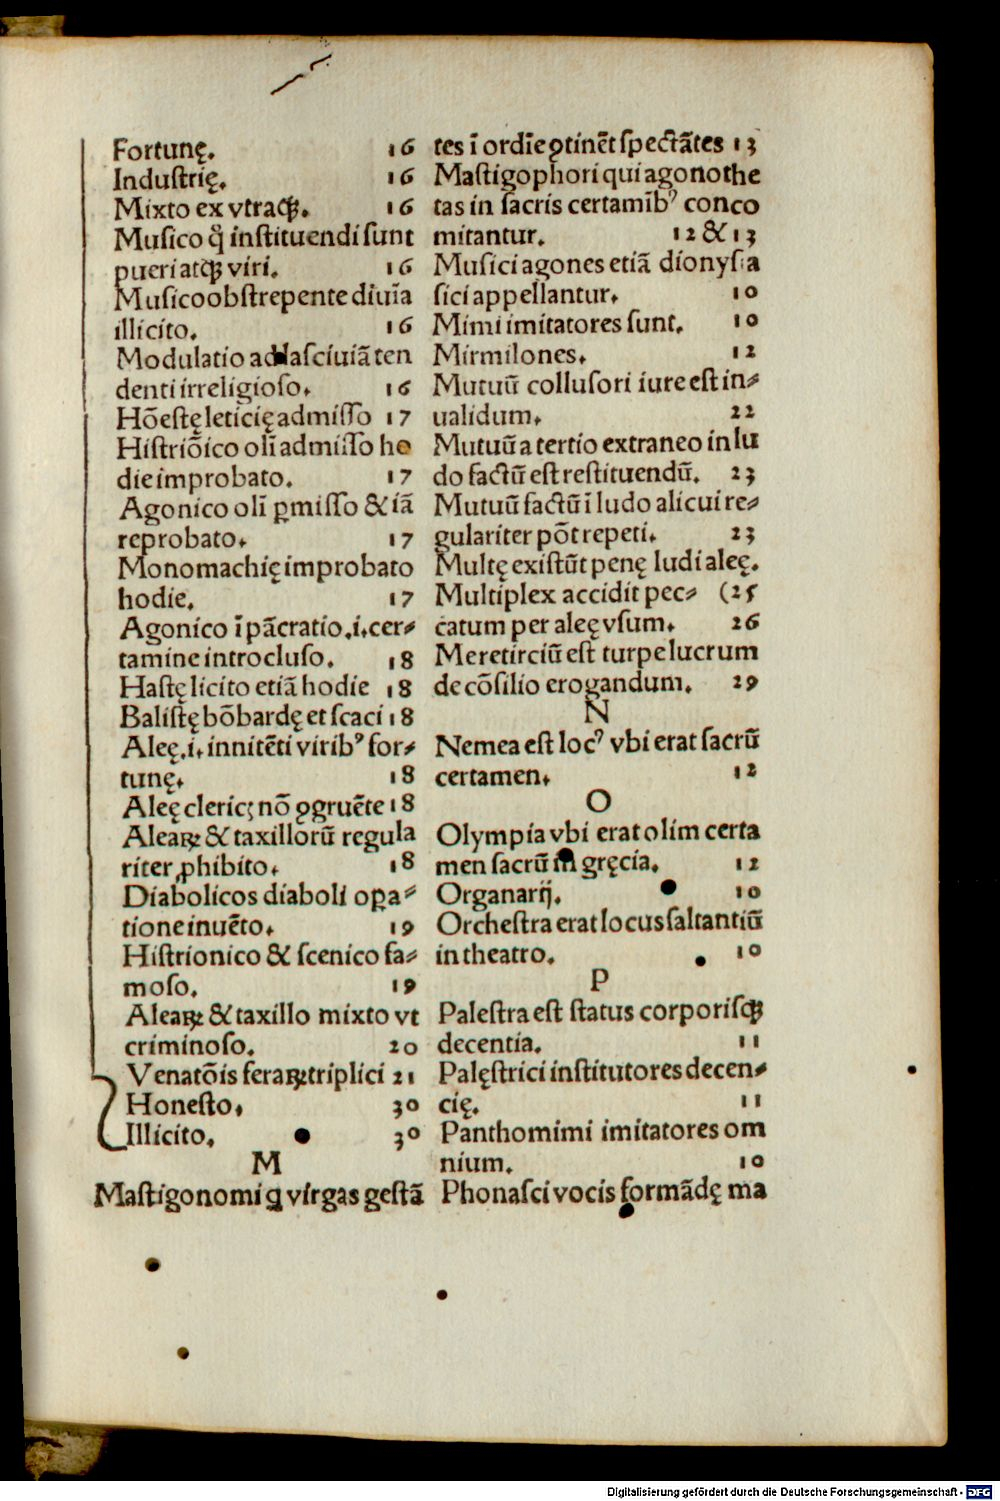 Fortunę. 16
Industrię. 16
Mixto ex vtraqꝫ. 16
Musico q̃ instituendi sunt
pueri atqꝫ viri. 16
Musico obstrepente diuīa
illicito. 16
Modulatio ad lasciuiā ten
denti irreligioso. 16
Hōestę leticię admisso 17
Histriōico olī admisso ho
die improbato. 17
Agonico olī ꝑmisso & iā
reprobato. 17
Monomachię improbato
hodie. 17
Agonico ī pācratio .i. cer⸗
tamine introcluso. 18
Hastę licito etiā hodie 18
Balistę bōbardę et scaci 18
Aleę .i. innitēti viribꝰ for⸗
tunę. 18
Aleę clericꝭ nō ꝯgruēte 18
Aleaꝝ & taxillorū regula
riter ꝓhibito. 18
Diabolicos diaboli oꝑa⸗
tione inuēto. 19
Histrionico & scenico fa⸗
moso. 19
Aleaꝝ & taxillo mixto vt
criminoso. 20
Venatōis feraꝝ triplici 21
Honesto. 30
Illicito. 30
M
Mastigonomi ꝗ virgas gestā
tes ī ordīe ꝯtinēt spectātes 13
Mastigophori qui agonothe
tas in sacris certamībꝰ conco
mitantur. 12 & 13
Musici agones etiā dionysia
sici appellantur. 10
Mimi imitatores sunt. 10
Mirmilones. 12
Mutuū collusori iure est in⸗
ualidum. 22
Mutuū a tertio extraneo in lu
do factū est restituendū. 23
Mutuū factū ī ludo alicui re⸗
gulariter pōt repeti. 23
Multę existūt penę ludi aleę.
Multiplex accidit pec⸗ (25
catum per aleę vsum. 26
Meretirciū est turpe lucrum
de cōsilio erogandum. 29
N
Nemea est locꝰ vbi erat sacrū
certamen. 12
O
Olympia vbi erat olim certa
men sacrū in gręcia. 12
Organarij. 10
Orchestra erat locus saltantiū
in theatro. 10
P
Palestra est status corporisqꝫ
decentia. 11
Palęstrici institutores decen⸗
cię. 11
Panthomimi imitatores om
nium. 10
Phonasci vocis formādę ma
Digitalisierung gefördert durch die Deutsche Forschungsgemeinschaft - DFG